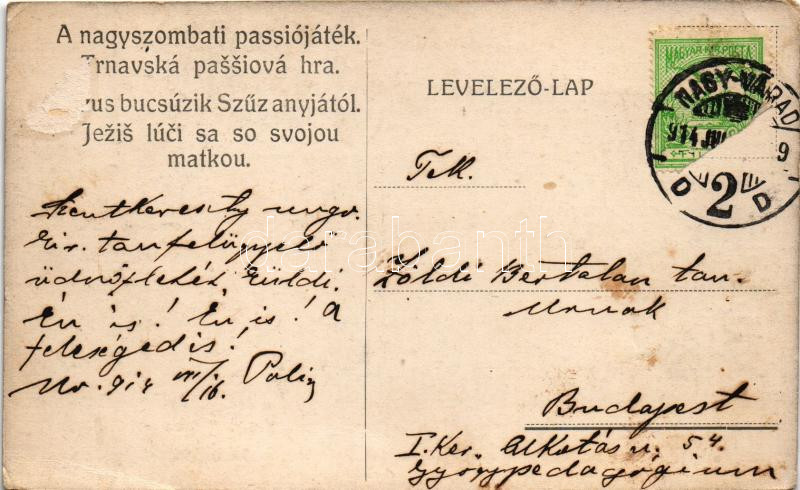 A nagyszombati passiójáték.
Trnavská paššiová hra.
zus bucsúzik Szűz anyjától.
Ježiš lúči sa so svojou
matkou.
LEVELEZŐ-LAP
MAGYAR KIR. POSTA
NAGY-VÁRAD
914 JUL 9
D 2 D
Tek.
Zöldi Bertalan tan.
Urnak
Budapest
I. Ker. Alkotás u. 54.
Gyógypedagógium
Szentkereszty
kir. tanfelügyelő
üdvözletét küldi.
Én is! Én is! A
feleséged is!
Nv. 914 VII/16.
darabanth